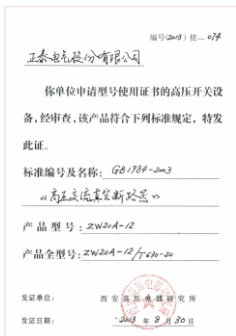 编号(2013)使—074
正泰电气股份有限公司
你单位申请型号使用证书的高压开关设
备,经审查,该产品符合下列标准规定,特发
此证。
标准编号及名称: GB1984-2003
《高压交流真空断路器》
产品型号: ZW20A-12
产品全型号: ZW20A-12/T630-20
发证单位: 西安高压电器研究所
发证日期: 2013年8月30日